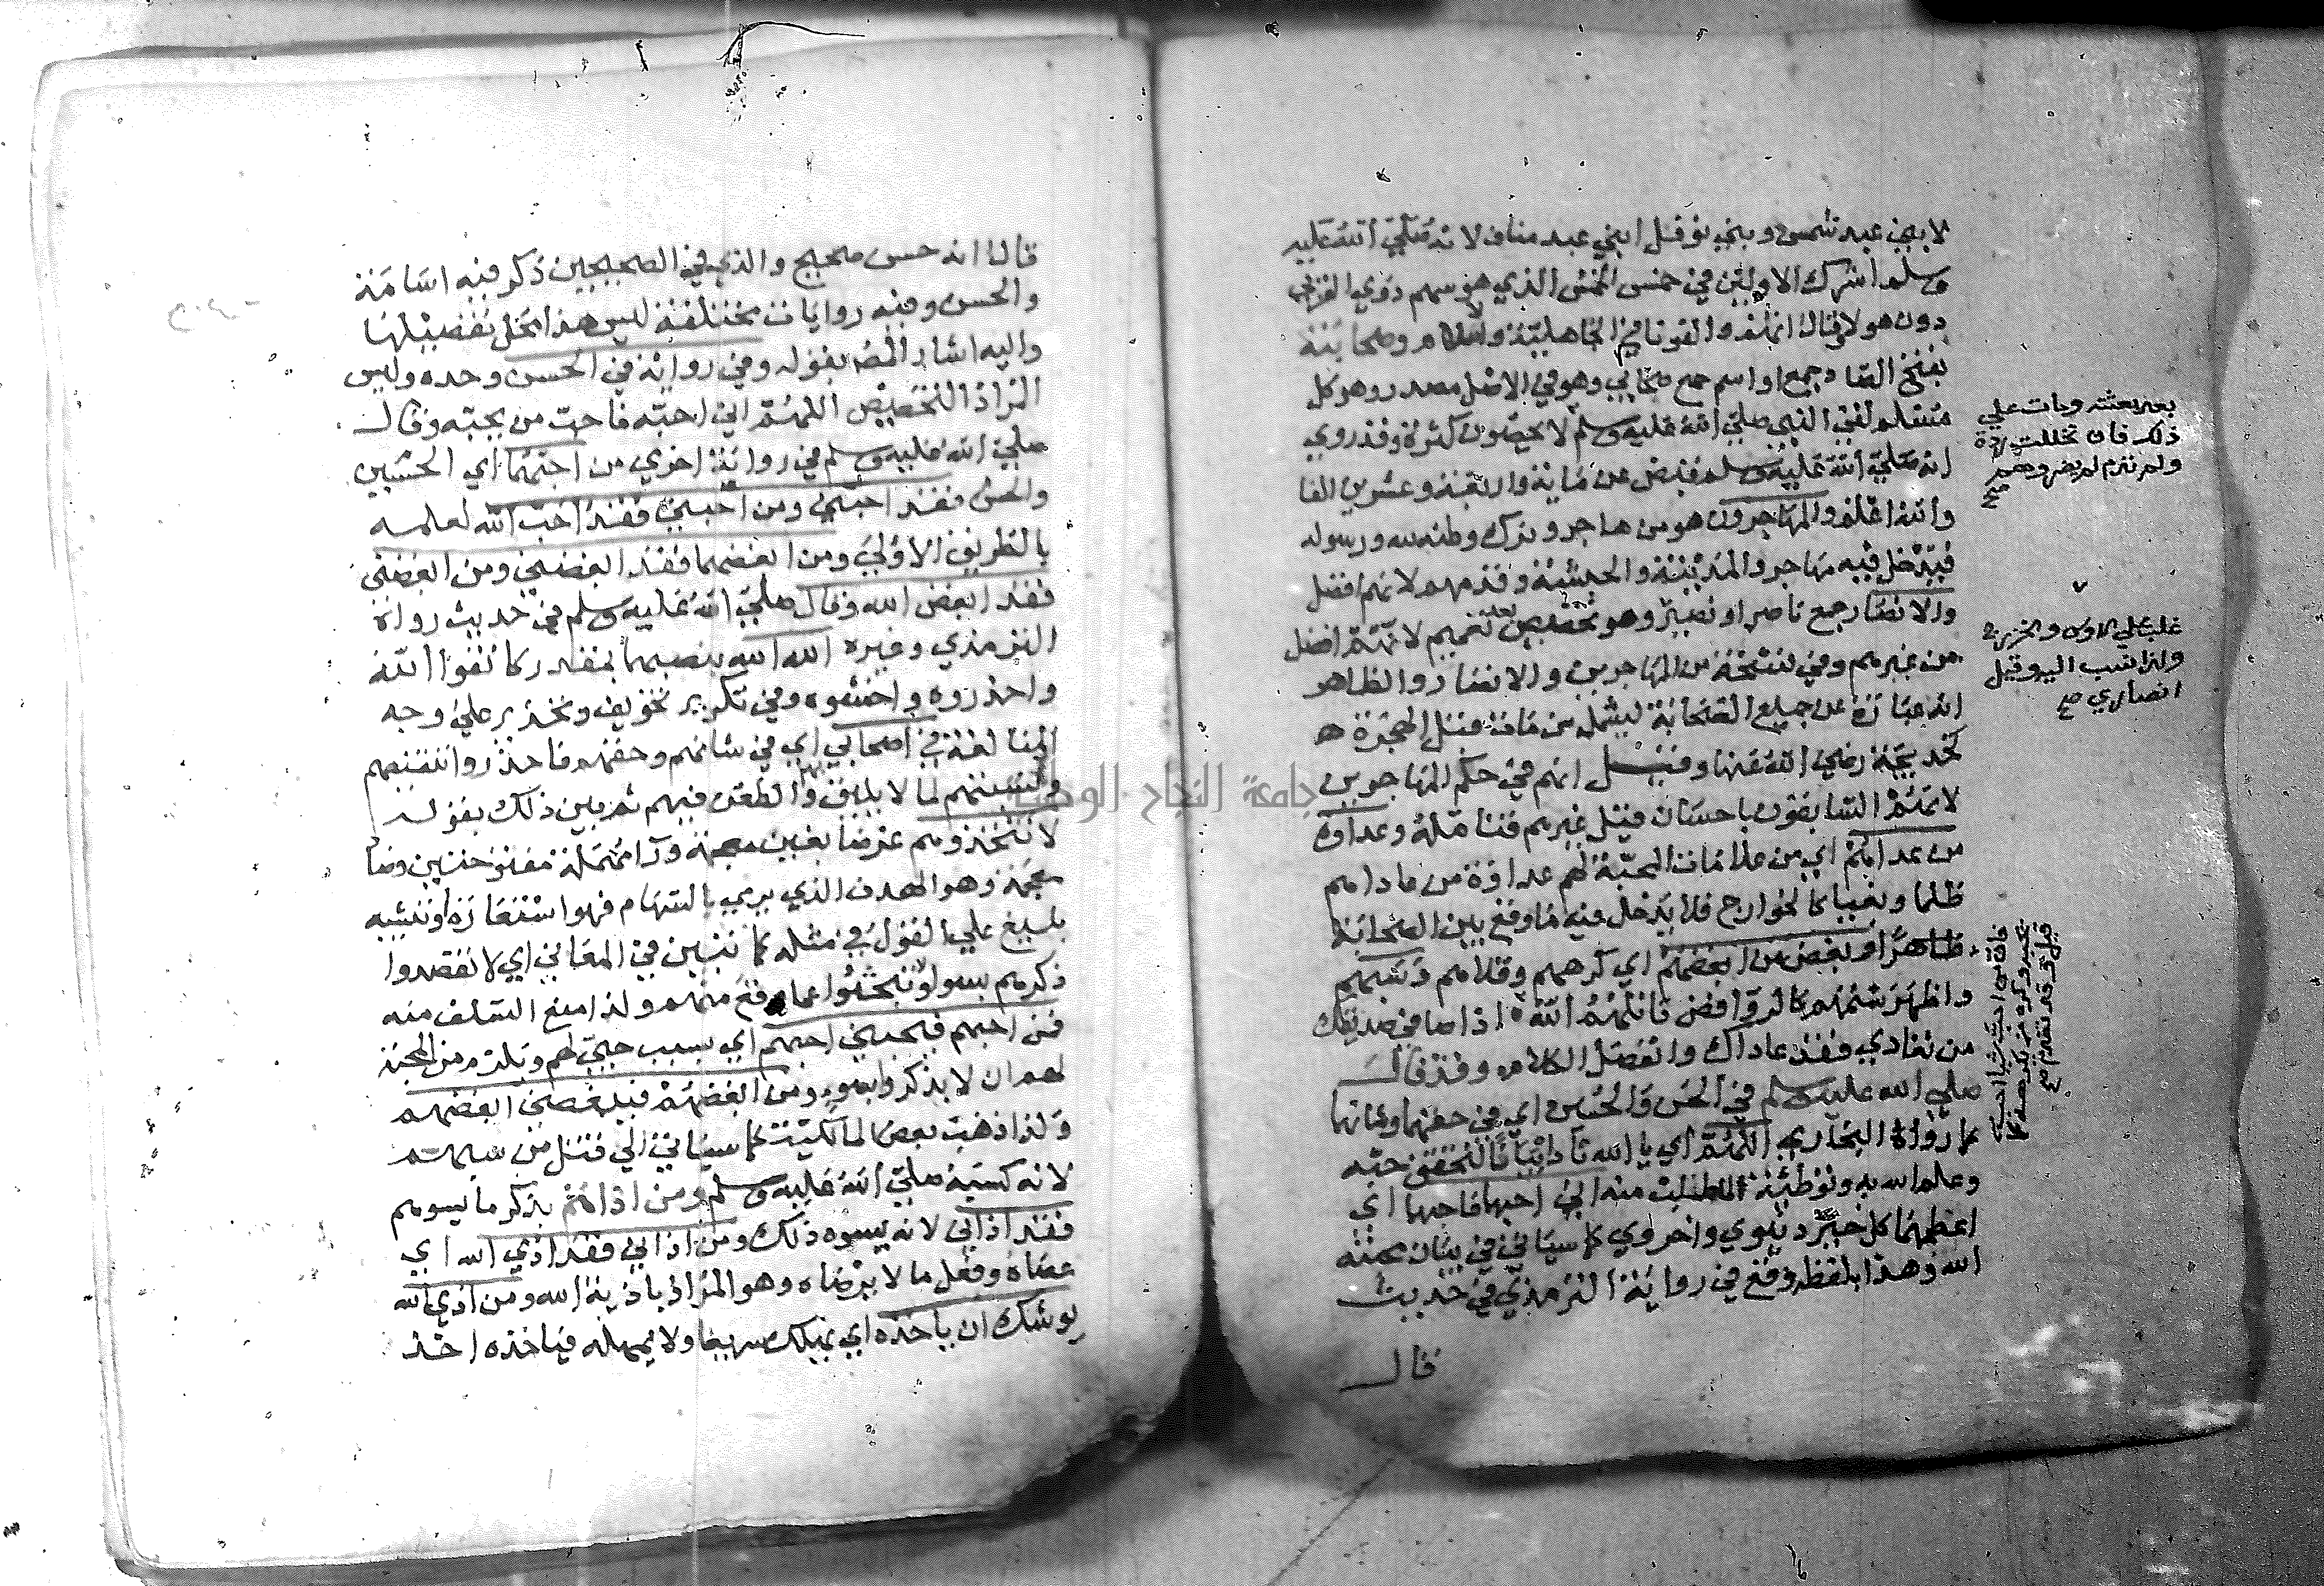 لا بني عبد شمس وبني نوفل ابني عبد مناف لانه صلي الله عليه
وسلم اشرك الاولين في خمس الخمس الذي هو سهم ذوي القربي
دون هولا وقال انهم والفونا في الجاهلية والاسلام وصحابته
بفتح الصاد جمع او اسم جمع صحابي وهو في الاصل مصدر وهو كل
مسلم لقي النبي صلي الله عليه وسلم لا يحصون كثرة وقد روي
انه صلي الله عليه وسلم قبض عن ماية واربعة وعشرين الفا
والله اعلم والمهاجرون هو من هاجر وترك وطنه لله ورسوله
فيدخل فيه مهاجر والمدينة والحبشة وقدمهم لانهم افضل
والانصار جمع ناصر او نصير وهو تخصيص بعد تعميم لانهم افضل
من غيرهم وفي نسخة من المهاجرين والانصار والظاهر
انه عبارة عن جميع الصحابة ليشمل من مات قبل الهجرة
كخديجة رضي الله عنها وقيل انهم في حكم المهاجرين
لانهم السابقون باحسان قبل غيرهم فتامله وعداوة
من عداهم اي من علامات المحبة لهم عداوة من عاداهم
ظلما وبغيا كالخوارج فلا يدخل فيه ما وقع بين الصحابة
ظاهرا وبغض من ابغضهم اي كرههم وقلاهم وسبهم
واظهر شتمهم كالروافض قاتلهم الله اذا صافي صديقك
من تعادي فقد عاداك وانفصل الكلام وقد قال
صلي الله عليه وسلم في الحسن والحسين اي في حقهما وشانهما
كما رواه البخاري اللهم اي يا الله نادي لتحقق حبه
وعلم الله به وتوطئة للطلب منه اني احبهما فاحبهما اي
اعطهما كل خير دنيوي واخروي كما سياتي في بيان محبته
الله وهذا بلفظه وقع في رواية الترمذي في حديث
قال
بعد بعثته ومات علي
ذلك فان تخللت ردة
ولم تدم لم يضر وهم
صح
غلب علي الاوس والخزرج
ولذا نسب اليه وقيل
انصاري صح
قالا انه حسن صحيح والذي في الصحيحين ذكر فيه اسامة
والحسن وفيه روايات مختلفة ليس هذا محل تفصيلها
واليه اشار المص بقوله وفي رواية في الحسن وحده وليس
المراد التخصيص اللهم اني احبه فاحب من يحبه وقال
صلي الله عليه وسلم في رواية اخري من احبهما اي الحسين
والحسن فقد احبني ومن احبني فقد احب الله لعلمه
بالطريق الاولي ومن ابغضهما فقد ابغضني ومن ابغضني
فقد ابغض الله وقال صلي الله عليه وسلم في حديث رواه
الترمذي وغيره الله الله بنصبهما بمقدر كاتقوا الله
واحذروه واخشوه وفي تكرير تخويف وتحذير علي وجه
المبالغة في اصحابي اي في شانهم وحقهم فاحذروا تنقيصهم
ونسبتهم لما لا يليق والطعن فيهم ثم بين ذلك بقوله
لا تتخذوهم غرضا بغين معجمة ورا مهملة مفتوحتين وضاد
معجمة وهو الهدف الذي يرمي بالسهام فهو استعارة او تشبيه
بليغ علي القول في مثله كما تبين في المعاني اي لا تقصدوا
ذكرهم بسوء ولا تبحثوا عما وقع منهم ولذا منع السلف منه
فمن احبهم فبحبي احبهم اي بسبب حبي لهم ويلزم من المحبة
لهم ان لا يذكروا بسوء ومن ابغضهم فببغضي ابغضهم
ولذا ذهب بعض المالكية كما سياتي الي قتل من سبهم
لانه كسبه صلي الله عليه وسلم ومن اذاهم بذكر ما يسوهم
فقد اذاني لانه يسوه ذلك ومن اذاني فقد اذي الله اي
عصاه وفعل ما لا يرضاه وهو المراد باذية الله ومن اذي الله
يوشك ان ياخذه اي يهلك سريعا ولا يمهله فياخذه اخذ
جامعة النجاح الوطنية